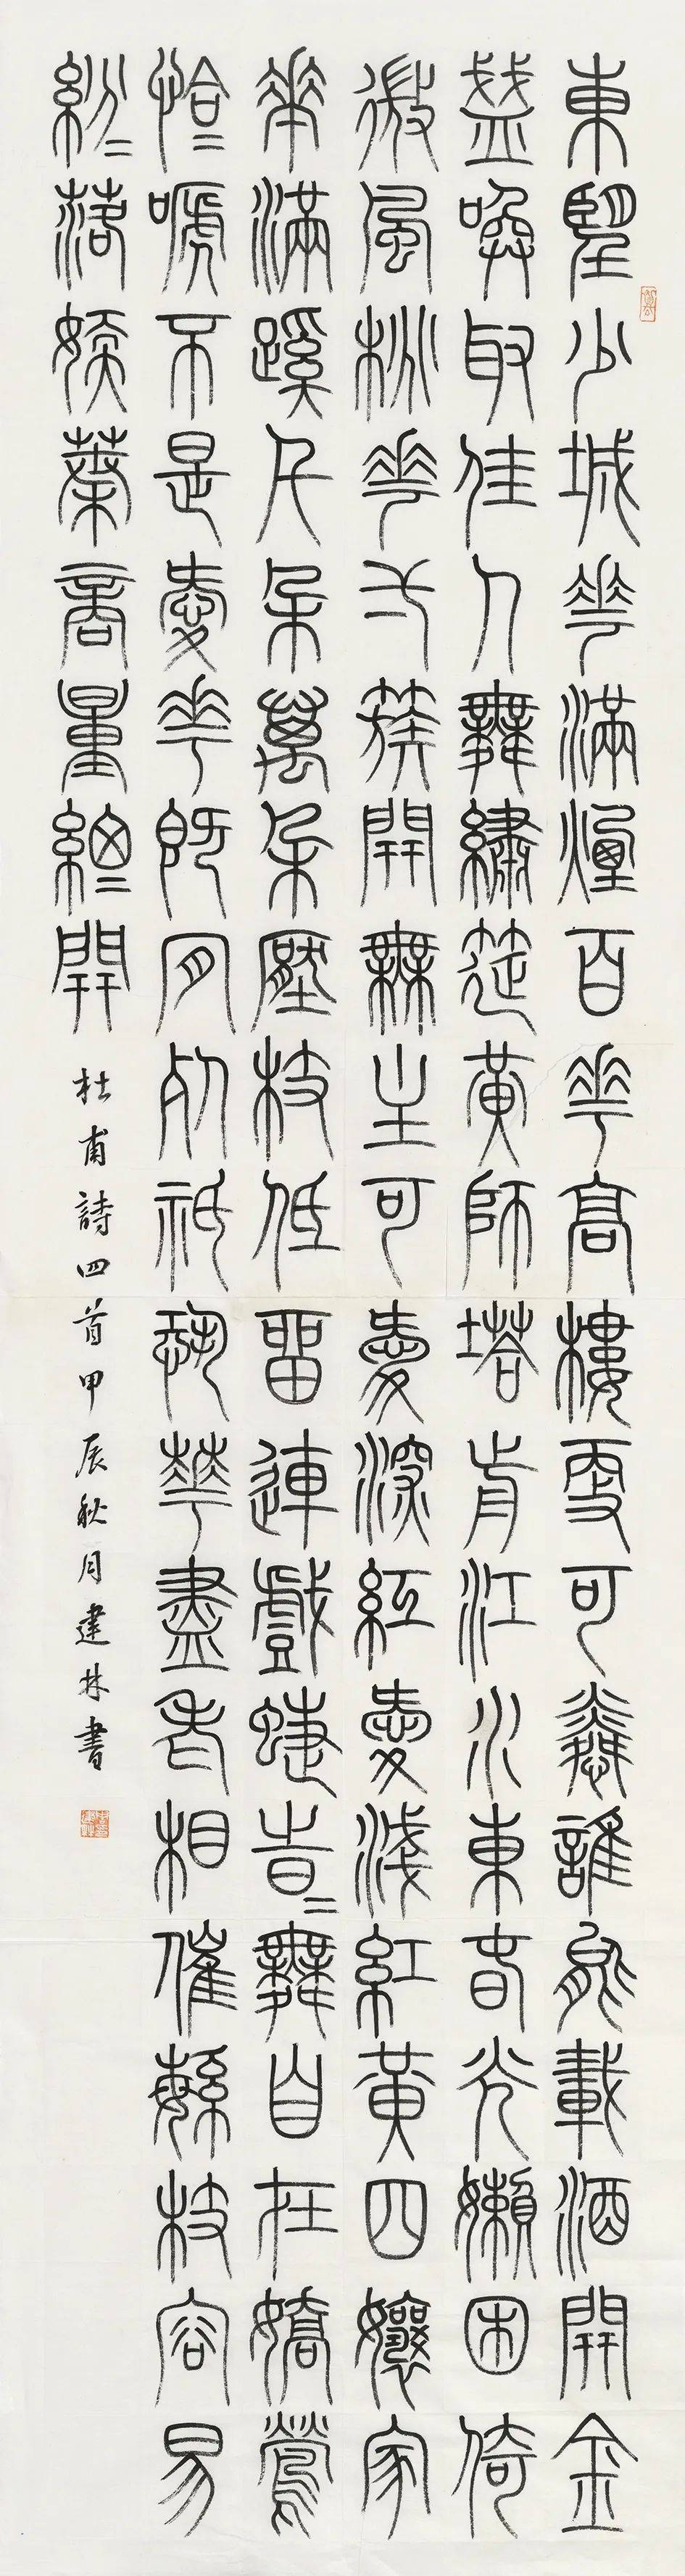 東望少城花滿煙百花高樓更可憐誰能載酒開金
盞喚取佳人舞繡筵黃師塔前江水東春光懶困倚
微風桃花一簇開無主可愛深紅愛淺紅黃四孃家
花滿蹊千朵萬朵壓枝低留連戲蜨時〻舞自在嬌鶯
恰〻啼不是愛花即肎死祇恐花盡老相催繁枝容易
紛〻落嫩葉商量細〻開
杜甫詩四首甲辰秋月建林書